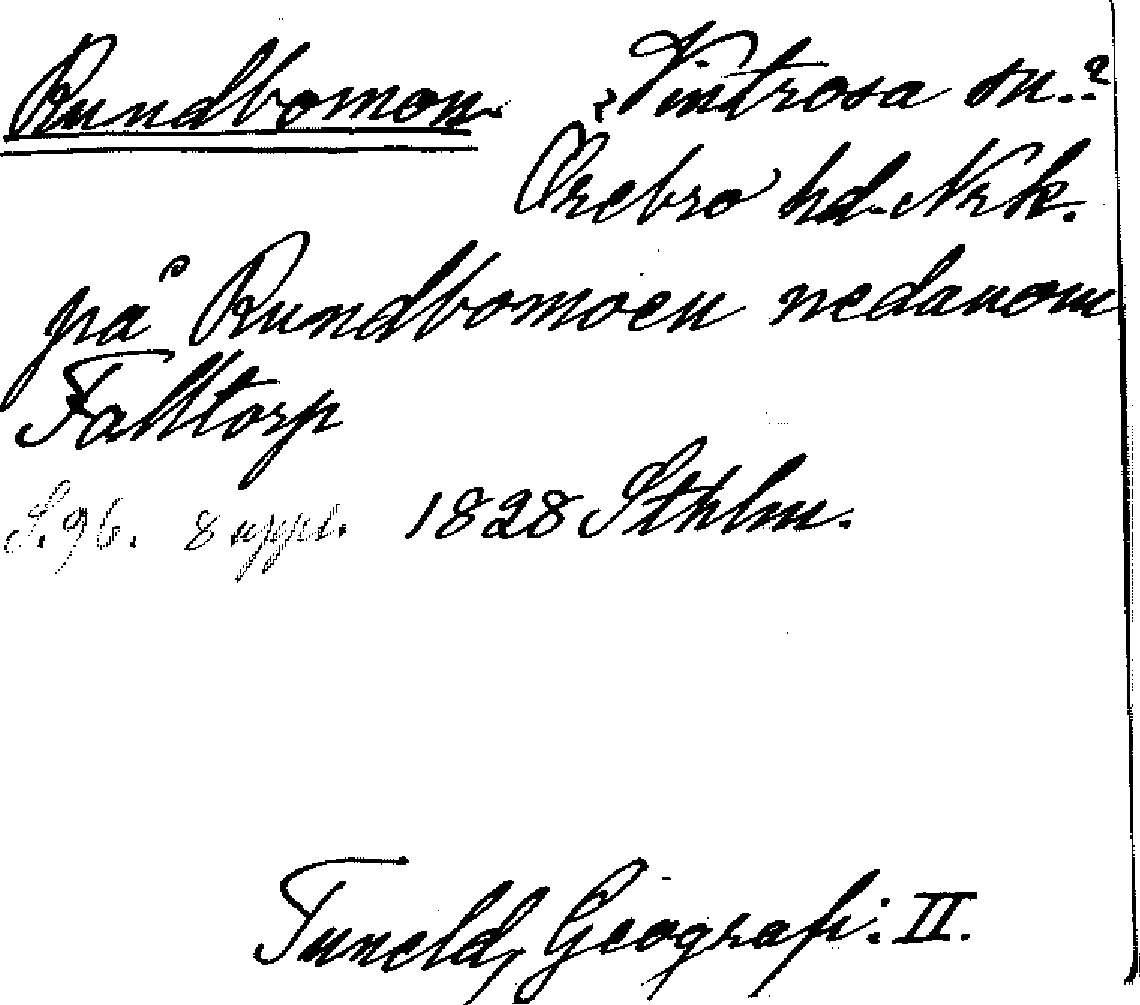 Rundbomon. Vintrosa sn.?
Örebro hd. Nrk.
på Rundbomoen nedanom
Falltorp
S. 96. 8 uppl. 1828 Sthlm.
Tuneld, Geografi: II.